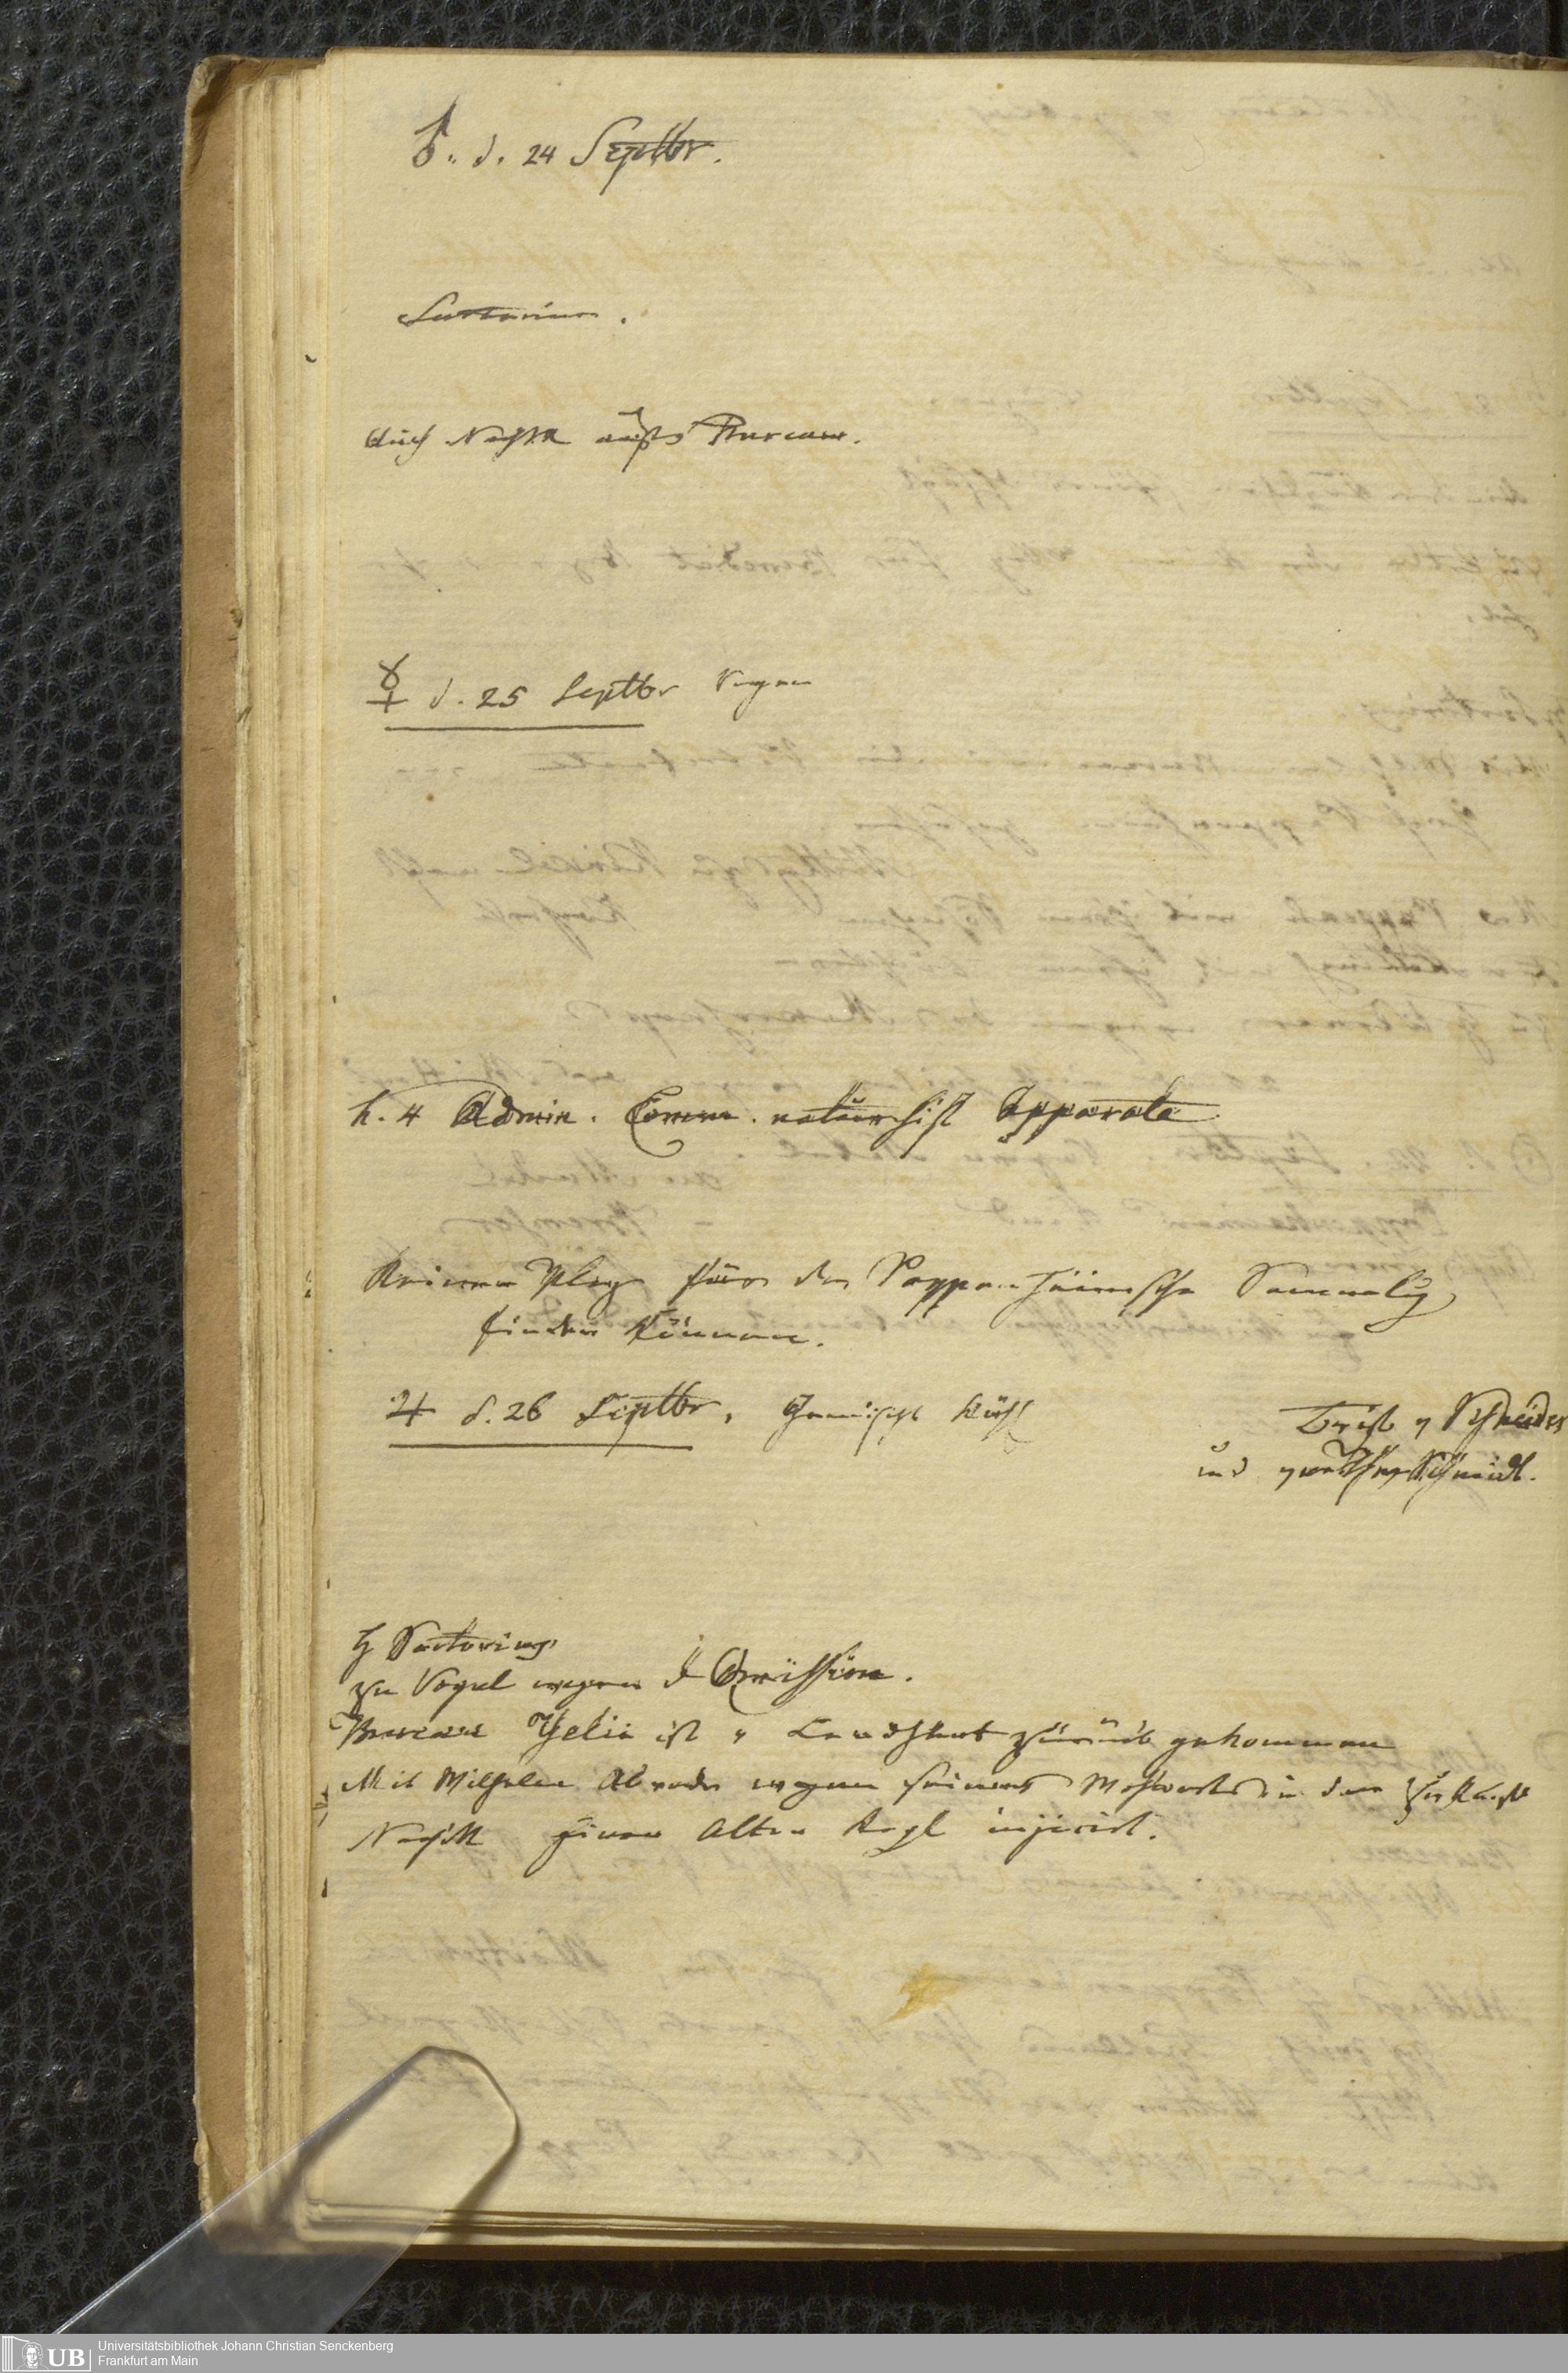 ♂. d. 24 Septbr.
Sartorius.
auch Nachts aufs Bureau.
☿ d. 25 Septbr Regen
h. 4 Admin. Comm. naturhist Apparate
Keinen Platz für die Pappenheimsche Sammlung
finden können.
♃ d. 26 Septbr, kühl
Briefe v Schneider
und
H Sartorius
zu Vogel wegen d Comission.
Bureau Yelin ist v Landshut zurück gekommen
Mit Wilhelm Abrede wegen seines in den
Nachts einen Alten injicirt.
Universitätsbibliothek Johann Christian Senckenberg
UB
Frankfurt am Main